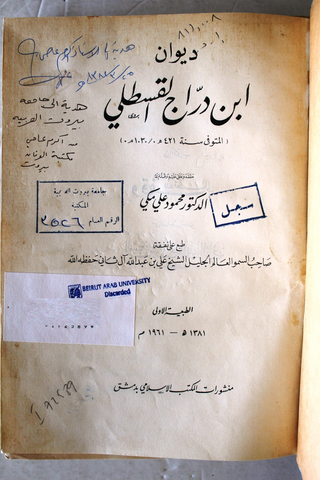 ديوان
ابن درّاج القسطلي
(المتوفى سنة ٤٢١ هـ / ١٠٣٠ م)
الدكتور محمود علي مكي
سجل
هدية الى جامعة
بيروت العربية
من أكرم عاصي
مكتبة العرفان
بيروت
جامعة بيروت العربية
المكتبة
الرقم العام ٣٥٤٦
طبع على نفقة
صاحب السمو العالم الجليل الشيخ علي بن عبد الله آل ثاني حفظه الله
BEIRUT ARAB UNIVERSITY
Discarded
الطبعة الأولى
١٣٨١ هـ — ١٩٦١ م
منشورات المكتب الاسلامي بدمشق